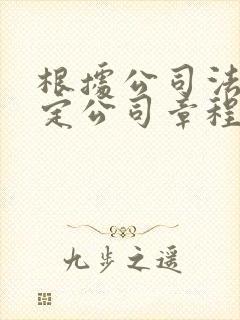 根據公司法
定公司章程
九步之遥